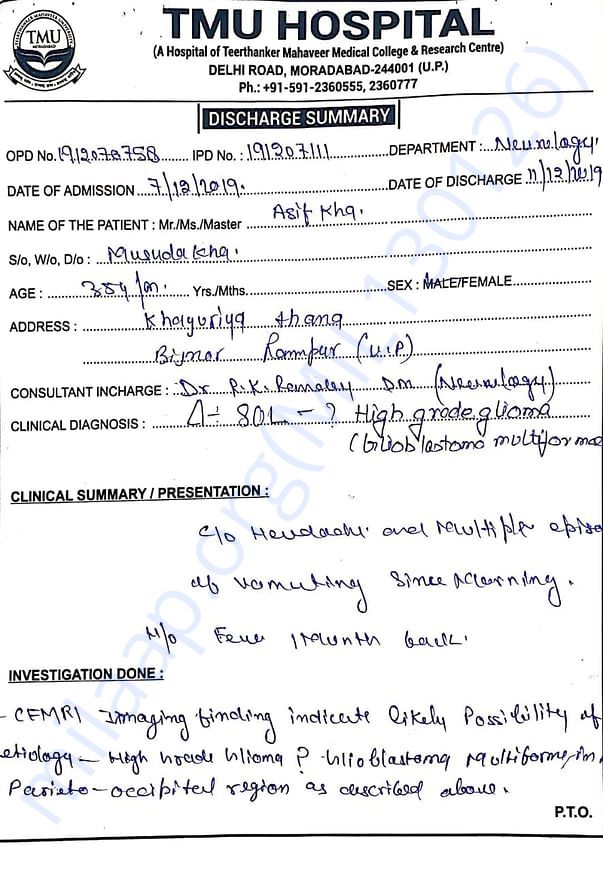 TMU
MORADABAD
TMU HOSPITAL
(A Hospital of Teerthanker Mahaveer Medical College & Research Centre)
DELHI ROAD, MORADABAD-244001 (U.P.)
Ph.: +91-591-2360555, 2360777
DISCHARGE SUMMARY
OPD No. 1912078758 IPD No. : 191207111 DEPARTMENT : Neurology
DATE OF ADMISSION 7/12/2019. DATE OF DISCHARGE 11/12/2019
NAME OF THE PATIENT : Mr./Ms./Master Asif Kha.
S/o, W/o, D/o : Musuda Kha.
AGE : 35y Yrs./Mths. SEX : MALE/FEMALE
ADDRESS : thana
Rampur (U.P)
CONSULTANT INCHARGE : Dr DM (Neurology)
CLINICAL DIAGNOSIS : Δ÷ SOL - ? High grade glioma
(Glioblastoma multiforme
CLINICAL SUMMARY / PRESENTATION :
c/o Headache and Multiple episo
of vomiting since Morning.
H/o Fever 1 Month back.
INVESTIGATION DONE :
- CEMRI Imaging finding indicate likely Possibility of
etiology - High Grade Glioma ? Glioblastoma Multiforme, in
Parieto-occipital region as described above.
P.T.O.
milaap.org(MIL_130126)